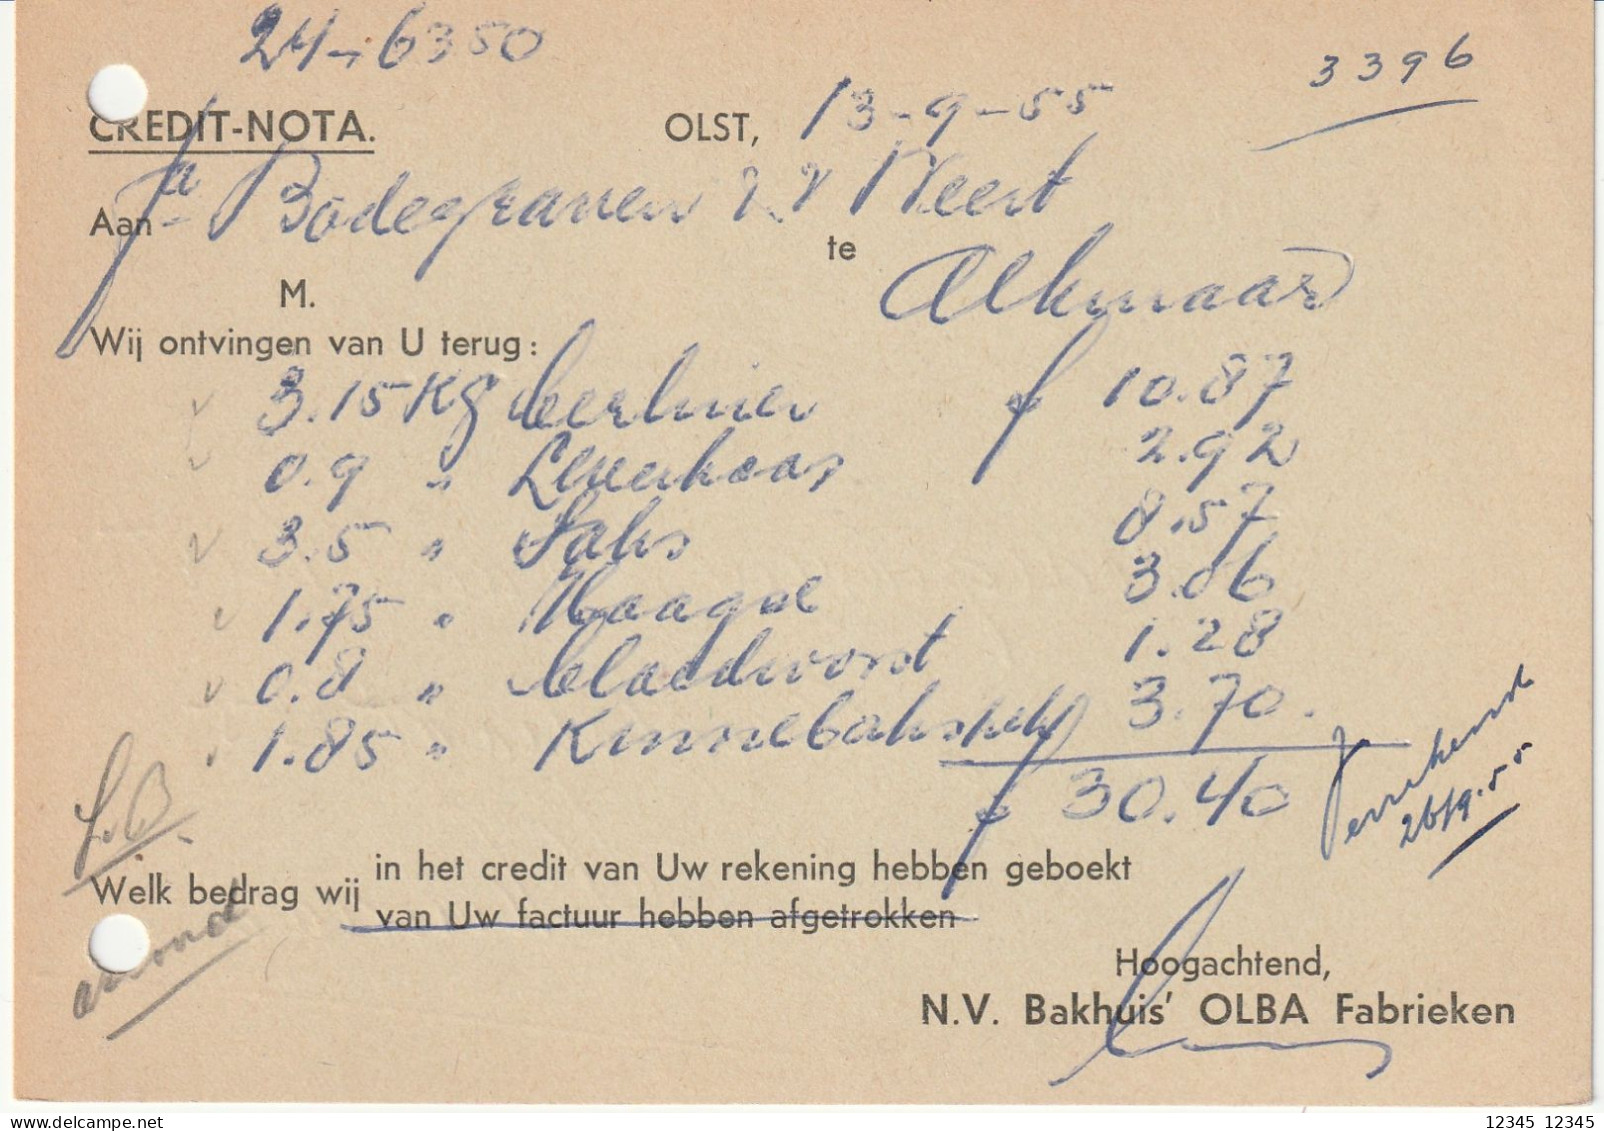 24-6350
3396
CREDIT-NOTA. OLST, 13-9-55
Aan Fa Bodegraven & v Weert
te Alkmaar
M.
Wij ontvingen van U terug:
3.15 KG Berliner f 10.87
0.9 " Leverkaas 2.92
3.5 " Saks 8.57
1.75 " Haagse 3.06
0.8 " bloedworst 1.28
1.85 " Kinnebakspek 3.70.
f 30.40
Verrekend
26/9.55
L.B.
accoord
Welk bedrag wij in het credit van Uw rekening hebben geboekt
van Uw factuur hebben afgetrokken
Hoogachtend,
N.V. Bakhuis' OLBA Fabrieken
12345 12345